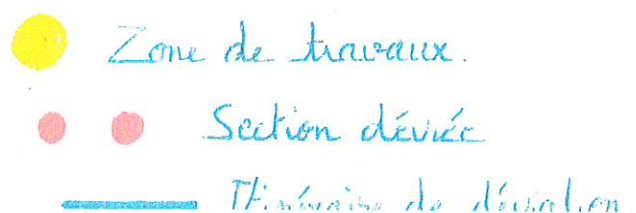 Zone de travaux.
Section déviée
Itinéraire de déviation